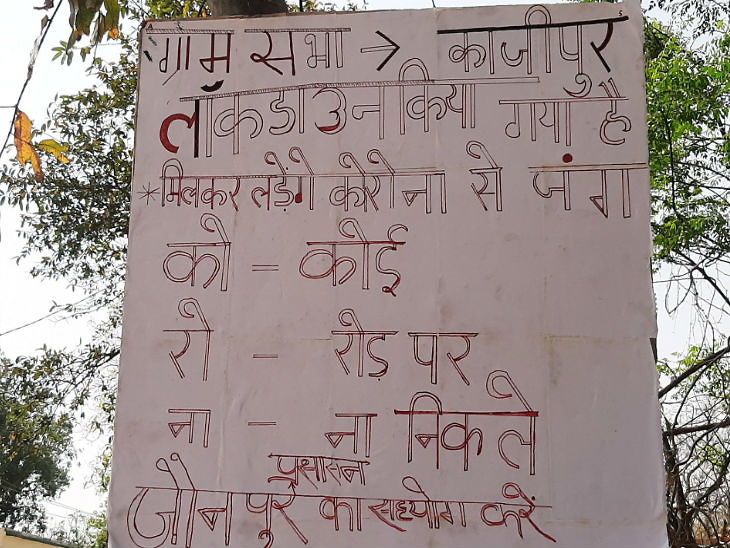 ग्राम सभा → काजीपुर
लॉकडाउन किया गया है
*मिलकर लड़ेंगे कोरोना से जंग
को – कोई
रो – रोड़ पर
ना – ना निकले
प्रसासन
जौनपुर का सहयोग करें